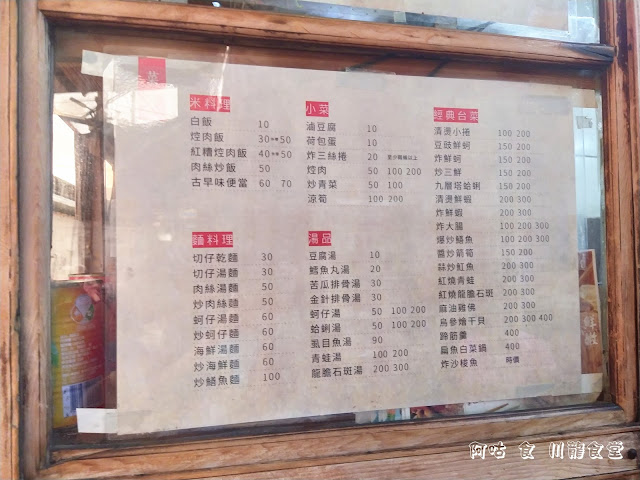 菜
米料理
白飯 10
焢肉飯 30 50
紅糟焢肉飯 40 50
肉絲炒飯 50
古早味便當 60 70
麵料理
切仔乾麵 30
切仔湯麵 30
肉絲湯麵 50
炒肉絲麵 50
蚵仔湯麵 60
炒蚵仔麵 60
海鮮湯麵 60
炒海鮮麵 60
炒鱔魚麵 100
小菜
滷豆腐 10
荷包蛋 10
炸三絲捲 20
焢肉 50 100 200
炒青菜 50 100
涼筍 100 200
湯品
豆腐湯 10
鱈魚丸湯 20
苦瓜排骨湯 30
金針排骨湯 30
蚵仔湯 50 100 200
蛤蜊湯 50 100 200
虱目魚湯 90
青蛙湯 100 200
龍膽石斑湯 200 300
經典台菜
清燙小捲 100 200
豆豉鮮蚵 150 200
炸鮮蚵 150 200
炒三鮮 150 200
九層塔蛤蜊 150 200
清燙鮮蝦 200 300
炸鮮蝦 200 300
炸大腸 100 200 300
爆炒鱔魚 100 200 300
醬炒箭筍 150 200
蒜炒魟魚 200 300
紅燒青蛙 200 300
紅燒龍膽石斑 200 300
麻油雞佛 200 300
烏參燴干貝 200 300 400
蹄筋羹 400
扁魚白菜鍋 400
炸沙梭魚 時價
阿咕 食 川龍食堂